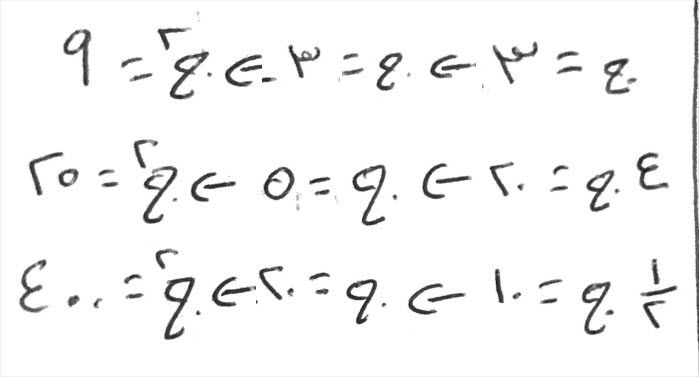 ع = ٣ ← ع = ٣ ← ع٢ = ٩
٤ ع = ٢٠ ← ع = ٥ ← ع٢ = ٢٥
١/٢ ع = ١٠ ← ع = ٢٠ ← ع٢ = ٤٠٠